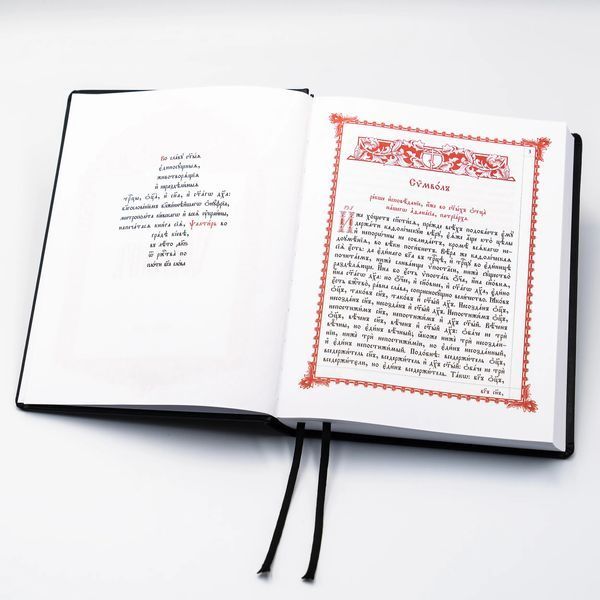 Во славꙋ ст҃ыѧ
є҆диносꙋщныѧ,
животворѧ́щїѧ
и҆ нераздѣли́мыѧ
трⷪ҇цы, ѻ҆ц҃а̀, и҆ сн҃а, и҆ ст҃а́гѡ дх҃а:
напеча́тасѧ кни́га сїѧ̀, ѱалти́рь во
гра́дѣ кі́евѣ,
въ лѣ́то
ѿ ржⷭ҇тва̀ по
пло́ти бг҃а сло́ва
Сѷ́мволъ
на́шегѡ а҆ѳана́сїа, патрїа́рха
И҆́же хо́щетъ спⷭ҇ти́сѧ, пре́жде всѣ́хъ подоба́етъ є҆мꙋ̀
держа́ти каѳоли́ческꙋю вѣ́рꙋ, є҆ѧ́же а҆́ще кто̀ цѣ́лы
и҆ непоро́чны не соблюда́етъ, кромѣ̀ всѧ́кагѡ не-
доꙋмѣ́нїѧ, во вѣ́ки поги́бнетъ. Вѣ́ра же каѳоли́ческаѧ
сїѧ̀ є҆́сть: да є҆ди́наго бг҃а въ трⷪ҇цѣ, и҆ трⷪ҇цꙋ во є҆ди́ницѣ
почита́емъ, нижѐ слива́юще ѵ҆поста́си, нижѐ сꙋщество̀
раздѣлѧ́юще. И҆́на бо є҆́сть ѵ҆поста́сь ѻ҆́ч҃аѧ, и҆́на сн҃о́внѧѧ,
и҆́на ст҃а́гѡ дх҃а. Но ѻ҆́ч҃ее, и҆ сн҃о́внее, и҆ ст҃а́гѡ дх҃а, є҆ди́но
є҆́сть бжⷭ҇тво̀, равна̀ сла́ва, соприсносꙋ́щно вели́чество. Ꙗ҆ко́въ
ѻ҆ц҃ъ, тако́въ сн҃ъ, тако́въ и҆ ст҃ы́й дх҃ъ. Несозда́нъ ѻ҆ц҃ъ,
несозда́нъ сн҃ъ, несозда́нъ и҆ ст҃ы́й дх҃ъ. Непостижи́мъ ѻ҆ц҃ъ,
непостижи́мъ сн҃ъ, непостижи́мъ и҆ ст҃ы́й дх҃ъ. Вѣ́ченъ
ѻ҆ц҃ъ, вѣ́ченъ сн҃ъ, вѣ́ченъ и҆ ст҃ы́й дх҃ъ: ѻ҆ба́че не трѝ
вѣ̑чны, но є҆ди́нъ вѣ́чный; ꙗ҆́коже нижѐ трѝ несозда́н-
нїи, нижѐ трѝ непостижи́мїи, но є҆ди́нъ несозда́нный,
и҆ є҆ди́нъ непостижи́мый. Подо́бнѣ: вседержи́тель ѻ҆ц҃ъ,
вседержи́тель сн҃ъ, вседержи́тель и҆ ст҃ы́й дх҃ъ: ѻ҆ба́че не трѝ
вседержи́тели, но є҆ди́нъ вседержи́тель. Та́кѡ: бг҃ъ ѻ҆ц҃ъ,
бг҃ъ сн҃ъ,